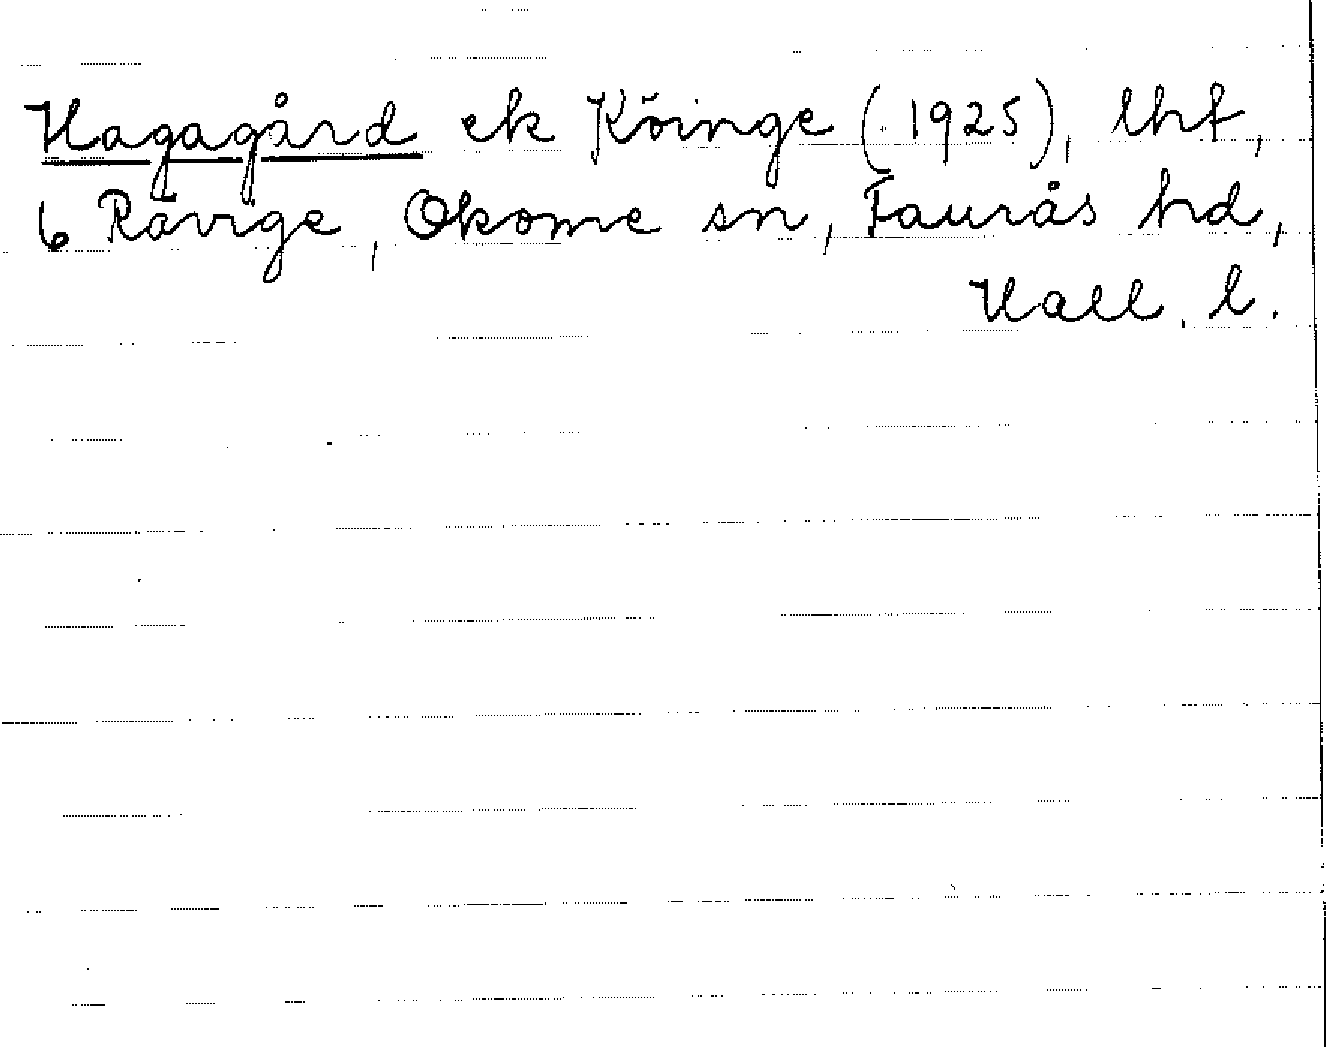 Hagagård ek Köinge (1925), lht,
6 Rävige, Okome sn, Faurås hd,
Hall. l.